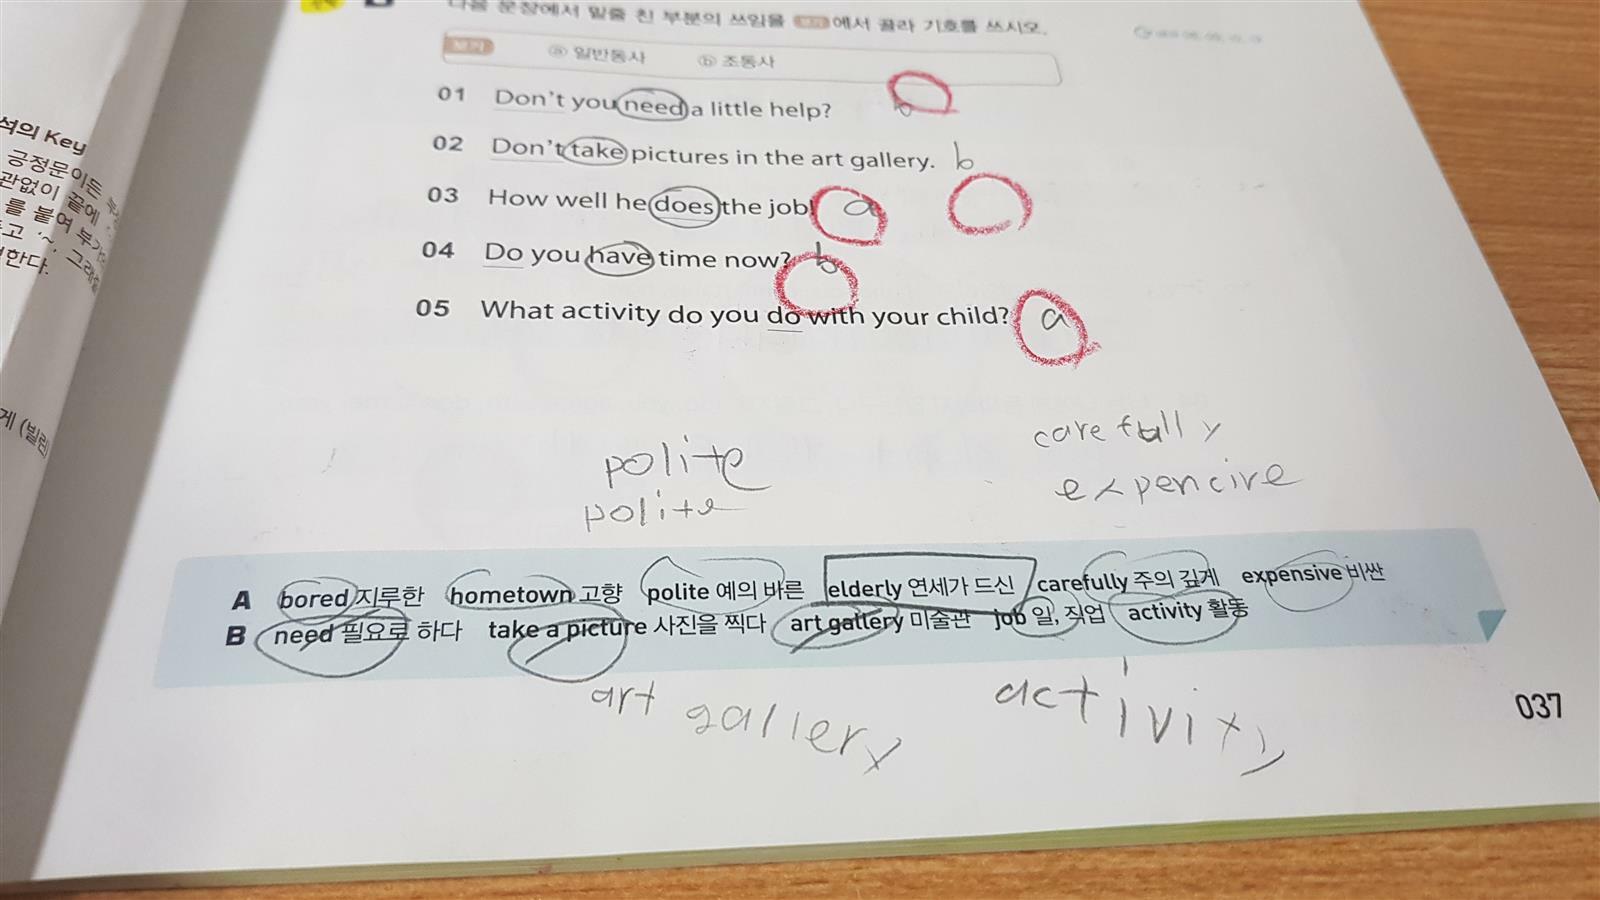 다음 문장에서 밑줄 친 부분의 쓰임을 보기 에서 골라 기호를 쓰시오.
보기 ⓐ 일반동사 ⓑ 조동사
01 Don't you need a little help? b
02 Don't take pictures in the art gallery. b
03 How well he does the job! a
04 Do you have time now? b
05 What activity do you do with your child? a
석의 Key
긍정문이든
관없이 끝에
를 붙여
한다.
게 (빌린)
polite
polite
carefully
expencire
A bored 지루한 hometown 고향 polite 예의 바른 elderly 연세가 드신 carefully 주의 깊게 expensive 비싼
B need 필요로 하다 take a picture 사진을 찍다 art gallery 미술관 job 일, 직업 activity 활동
art gallery
activity
037